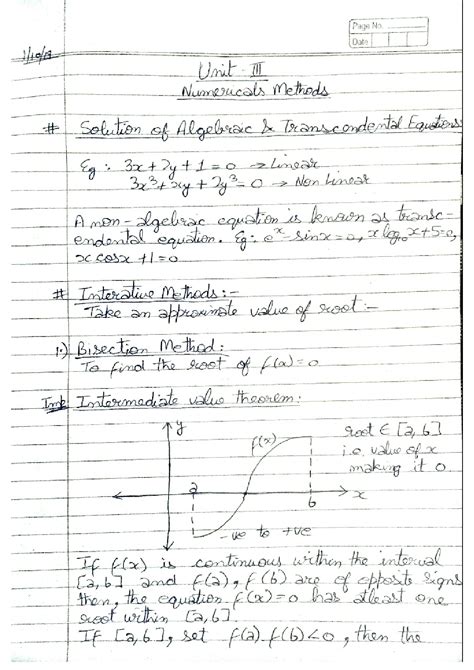 Page No.
Date
1/10/19
Unit - III
Numericals Methods
# Solution of Algebraic & Transcendental Equations:
Eg: 3x+2y+1=0 → Linear
3x³+xy+2y³=0 → Non Linear
A non-algebraic equation is known as transc-
endental equation. Eg: eˣ-sinx=0, xlog₁₀x+5=0,
x cosx+1=0
# Interative Methods:-
Take an approximate value of root:-
1.) Bisection Method:
To find the root of f(x)=0
Imp Intermediate value theorem:
y
f(x)
root ∈ [a,b]
i.e. value of x
making it 0.
a
b
x
-ve to +ve
If f(x) is continuous within the interval
[a,b] and f(a), f(b) are of opposite signs
then, the equation f(x)=0 has atleast one
root within [a,b].
If [a,b], set f(a).f(b)<0, then the